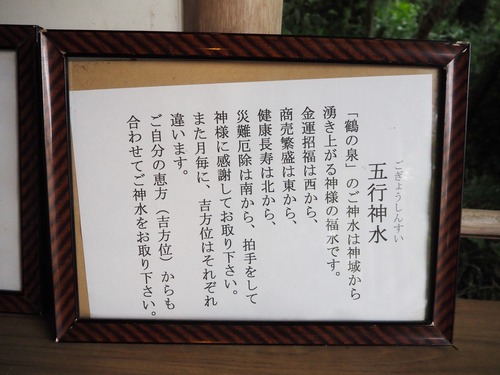 ごぎょうしんすい
五行神水
「鶴の泉」のご神水は神域から
湧き上がる神様の福水です。
金運招福は西から、
商売繁盛は東から、
健康長寿は北から、
災難厄除は南から、拍手をして
神様に感謝してお取り下さい。
また月毎に、吉方位はそれぞれ
違います。
ご自分の恵方（吉方位）からも
合わせてご神水をお取り下さい。